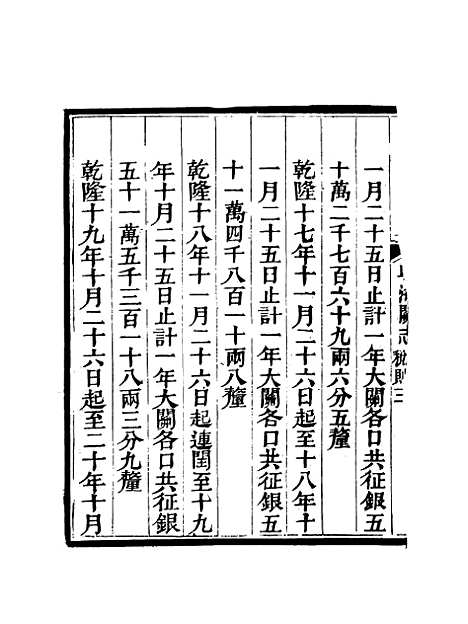 海關志 稅則三
一月二十五日止計一年大關各口共征銀五
十萬二千七百六十九兩六分五釐
乾隆十七年十一月二十六日起至十八年十
一月二十五日止計一年大關各口共征銀五
十一萬四千八百一十兩八釐
乾隆十八年十一月二十六日起連閏至十九
年十月二十五日止計一年大關各口共征銀
五十一萬五千三百一十八兩三分九釐
乾隆十九年十月二十六日起至二十年十月